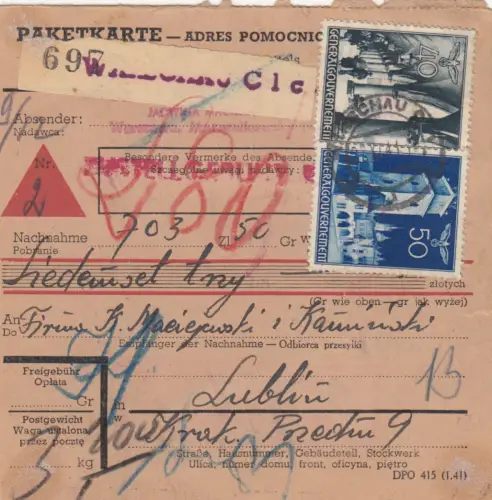 PAKETKARTE — ADRES POMOCNIC
697
WARSCHAU C 1 c
40
GENERALGOUVERNEMENT
Absender:
Nadawca:
Besondere Vermerke des Absende
Szczególne uwagi nadawcy:
Nr.
2
50
GENERALGOUVERNEMENT
Nachnahme 703 Zl 50 Gr w
Pobranie
Siedemset trzy
złotych
(Gr wie oben—gr jak wyżej)
An Firma K. Maciejewski i Kamiński
Do
Empfänger der Nachnahme – Odbiorca przesyłki
Freigebühr
Opłata
Gr
Lublin
13
in
w Krak. Przedm 9
Postgewicht
Waga ustalona
przez pocztę
5 kg
Straße, Hausnummer, Gebäudeteil, Stockwerk
Ulica, numer domu, front, oficyna, piętro
DPO 415 (1,41)